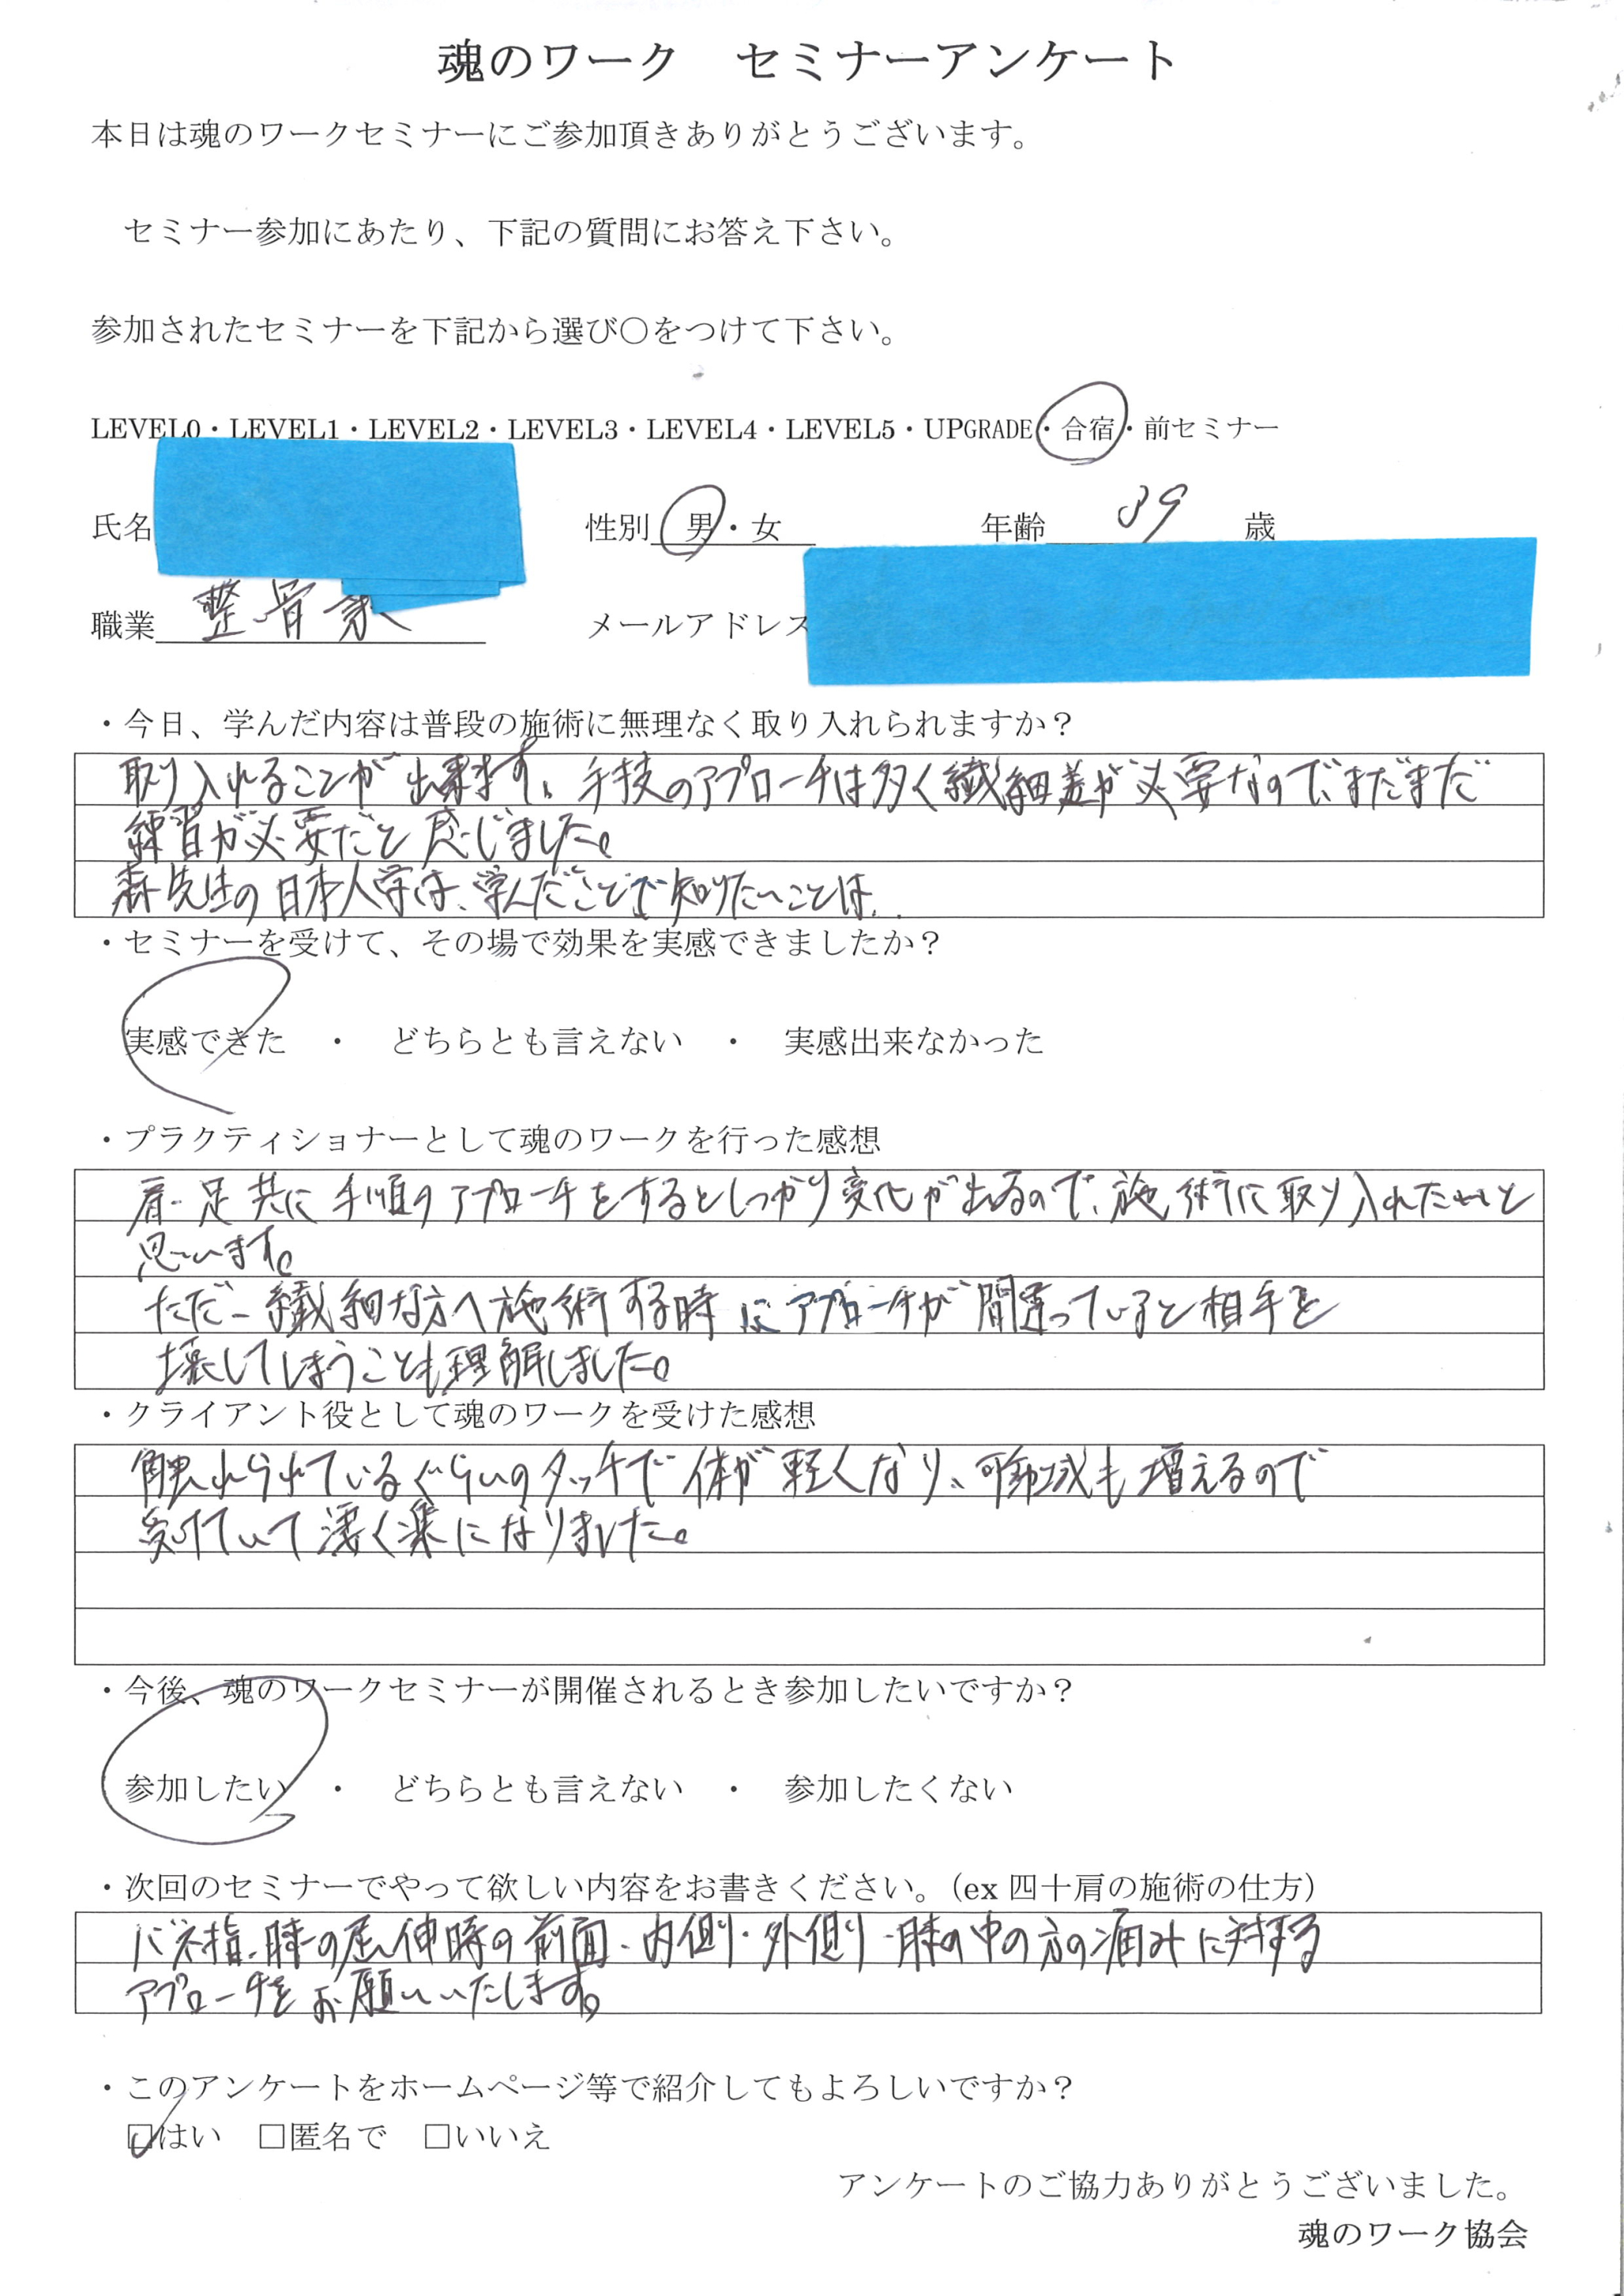 魂のワーク セミナーアンケート
本日は魂のワークセミナーにご参加頂きありがとうございます。
セミナー参加にあたり、下記の質問にお答え下さい。
参加されたセミナーを下記から選び〇をつけて下さい。
LEVEL0・LEVEL1・LEVEL2・LEVEL3・LEVEL4・LEVEL5・UPGRADE・合宿・前セミナー
氏名 性別 男・女 年齢 39 歳
職業 整骨家 メールアドレス
・今日、学んだ内容は普段の施術に無理なく取り入れられますか？
取り入れることが出来ます。手技のアプローチは多く繊細差が必要なので、まだまだ
練習が必要だと感じました。
森先生の日本人学は、学んだことで知りたいことは、
・セミナーを受けて、その場で効果を実感できましたか？
実感できた ・ どちらとも言えない ・ 実感出来なかった
・プラクティショナーとして魂のワークを行った感想
肩・足共に手順のアプローチをするとしっかり変化が出るので、施術に取り入れたいと
思います。
ただ、繊細な方へ施術する時にアプローチが間違っていると相手を
壊してしまうことも理解しました。
・クライアント役として魂のワークを受けた感想
触れられているぐらいのタッチで体が軽くなり、可動域も増えるので
受けていて凄く楽になりました。
・今後、魂のワークセミナーが開催されるとき参加したいですか？
参加したい ・ どちらとも言えない ・ 参加したくない
・次回のセミナーでやって欲しい内容をお書きください。（ex 四十肩の施術の仕方）
バネ指、膝の屈伸時の前面・内側・外側・膝の中の方の痛みに対する
アプローチをお願いいたします。
・このアンケートをホームページ等で紹介してもよろしいですか？
□はい □匿名で □いいえ
アンケートのご協力ありがとうございました。
魂のワーク協会